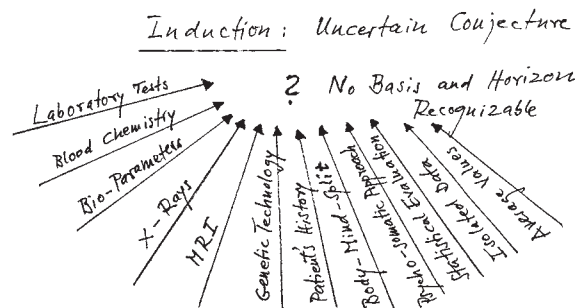 Induction: Uncertain Conjecture
? No Basis and Horizon
Recognizable
Laboratory Tests
Blood Chemistry
Bio-Parameters
X-Rays
MRI
Genetic Technology
Patient's History
Body-Mind-Split
Psycho-somatic Approach
Statistical Evaluation
Isolated Data
Average Values